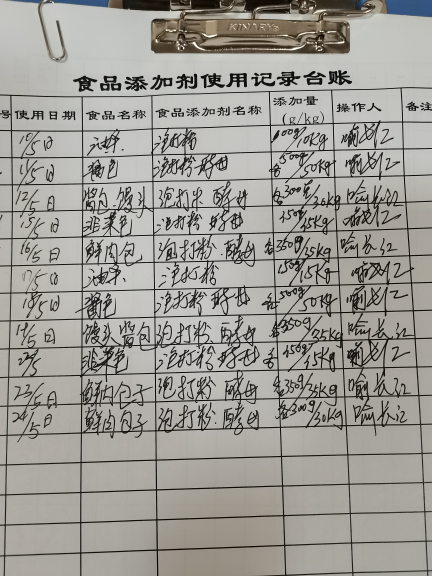 食品添加剂使用记录台账
号 使用日期 食品名称 食品添加剂名称 添加量(g/kg) 操作人 备注
10/5日 泡打粉 100g/10kg 喻长江
11/5日 酱包 泡打粉 酵母 各500g/50kg 喻长江
12/5日 酱包、馒头 泡打粉 酵母 各300g/30kg 喻长江
15/5日 韭菜包 泡打粉 酵母 各150g/15kg 喻长江
16/5日 鲜肉包 泡打粉、酵母 各350g/35kg 喻长江
17/5日 油条 泡打粉 150g/15kg 喻长江
18/5日 酱包 泡打粉 酵母 各500g/50kg 喻长江
19/5日 馒头 酱包 泡打粉、酵母 各350g/35kg 喻长江
/5日 韭菜包 泡打粉 酵母 各150g/15kg 喻长江
23/5日 鲜肉包子 泡打粉 酵母 各350g/35kg 喻长江
24/5日 鲜肉包子 泡打粉、酵母 各300g/30kg 喻长江